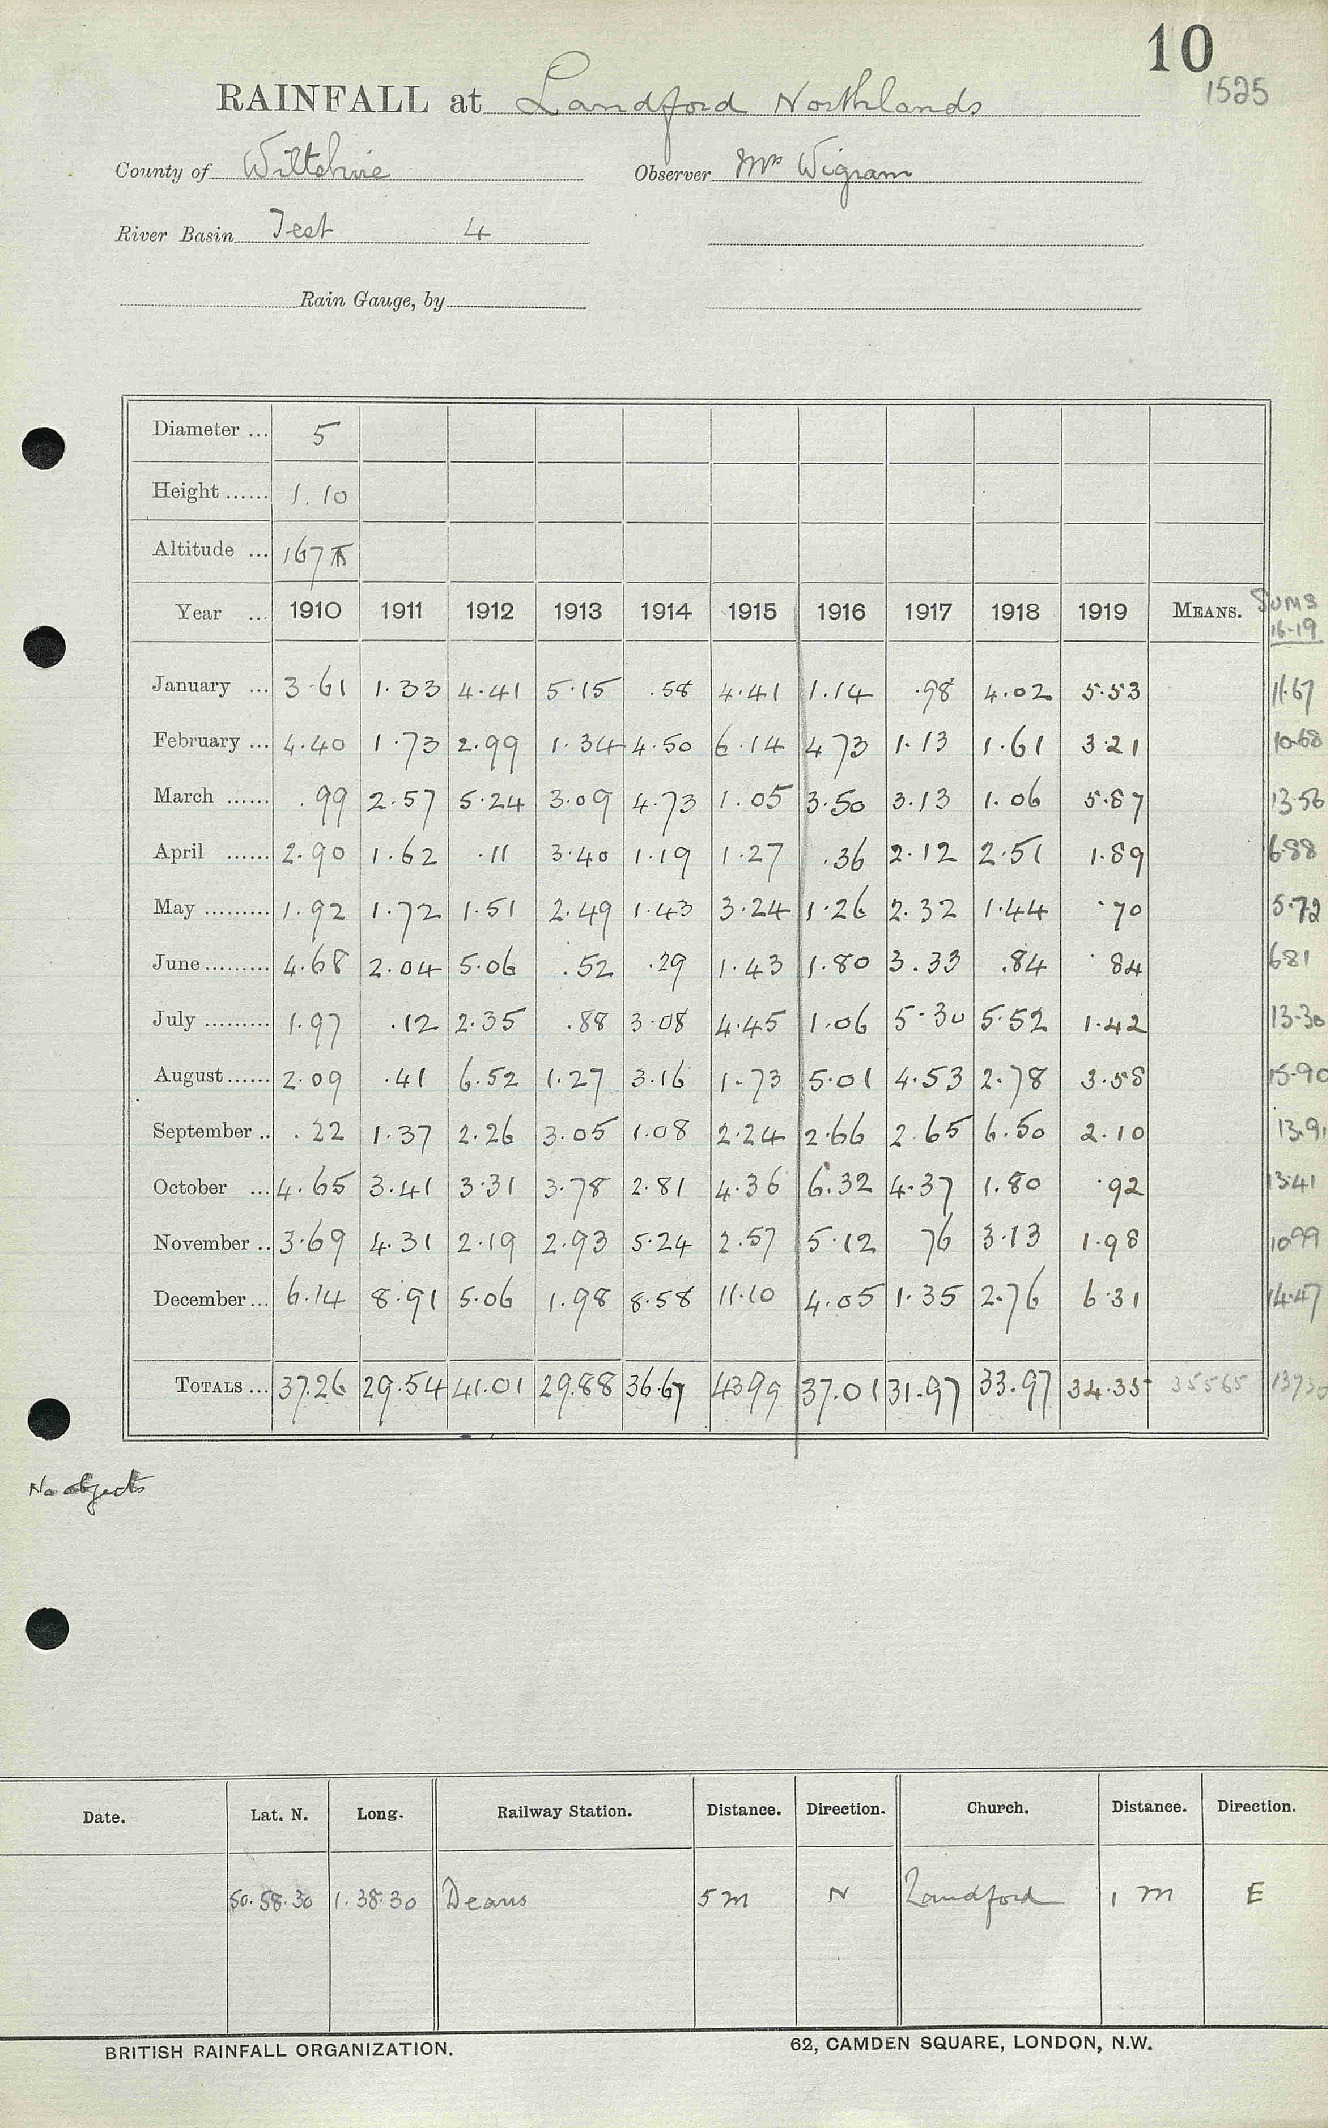 10
1525
RAINFALL at Landford Northlands
County of Wiltshire Observer Mrs Wigram
River Basin Test 4
Rain Gauge, by
Diameter ... 5
Height ...... 1.10
Altitude ... 167 ft
Year ... 1910 1911 1912 1913 1914 1915 1916 1917 1918 1919 MEANS. SUMS 16-19
January ... 3.61 1.33 4.41 5.15 .58 4.41 1.14 .98 4.02 5.53 11.67
February ... 4.40 1.73 2.99 1.34 4.50 6.14 4.73 1.13 1.61 3.21 10.68
March ...... .99 2.57 5.24 3.09 4.73 1.05 3.50 3.13 1.06 5.87 13.56
April ...... 2.90 1.62 .11 3.40 1.19 1.27 .36 2.12 2.51 1.89 6.88
May ......... 1.92 1.72 1.51 2.49 1.43 3.24 1.26 2.32 1.44 .70 5.72
June ......... 4.68 2.04 5.06 .52 .29 1.43 1.80 3.33 .84 .84 6.81
July ......... 1.97 .12 2.35 .88 3.08 4.45 1.06 5.30 5.52 1.42 13.30
August ...... 2.09 .41 6.52 1.27 3.16 1.73 5.01 4.53 2.78 3.58 15.90
September .. .22 1.37 2.26 3.05 1.08 2.24 2.66 2.65 6.50 2.10 13.91
October ... 4.65 3.41 3.31 3.78 2.81 4.36 6.32 4.37 1.80 .92 13.41
November .. 3.69 4.31 2.19 2.93 5.24 2.57 5.12 76 3.13 1.98 10.99
December ... 6.14 8.91 5.06 1.98 8.58 11.10 4.05 1.35 2.76 6.31 14.47
TOTALS ... 37.26 29.54 41.01 29.88 36.67 43.99 37.01 31.97 33.97 34.35 35565 13730
No objects
Date. Lat. N. Long. Railway Station. Distance. Direction. Church. Distance. Direction.
50.58.30 1.38.30 Deans 5 m N Landford 1 m E
BRITISH RAINFALL ORGANIZATION. 62, CAMDEN SQUARE, LONDON, N.W.